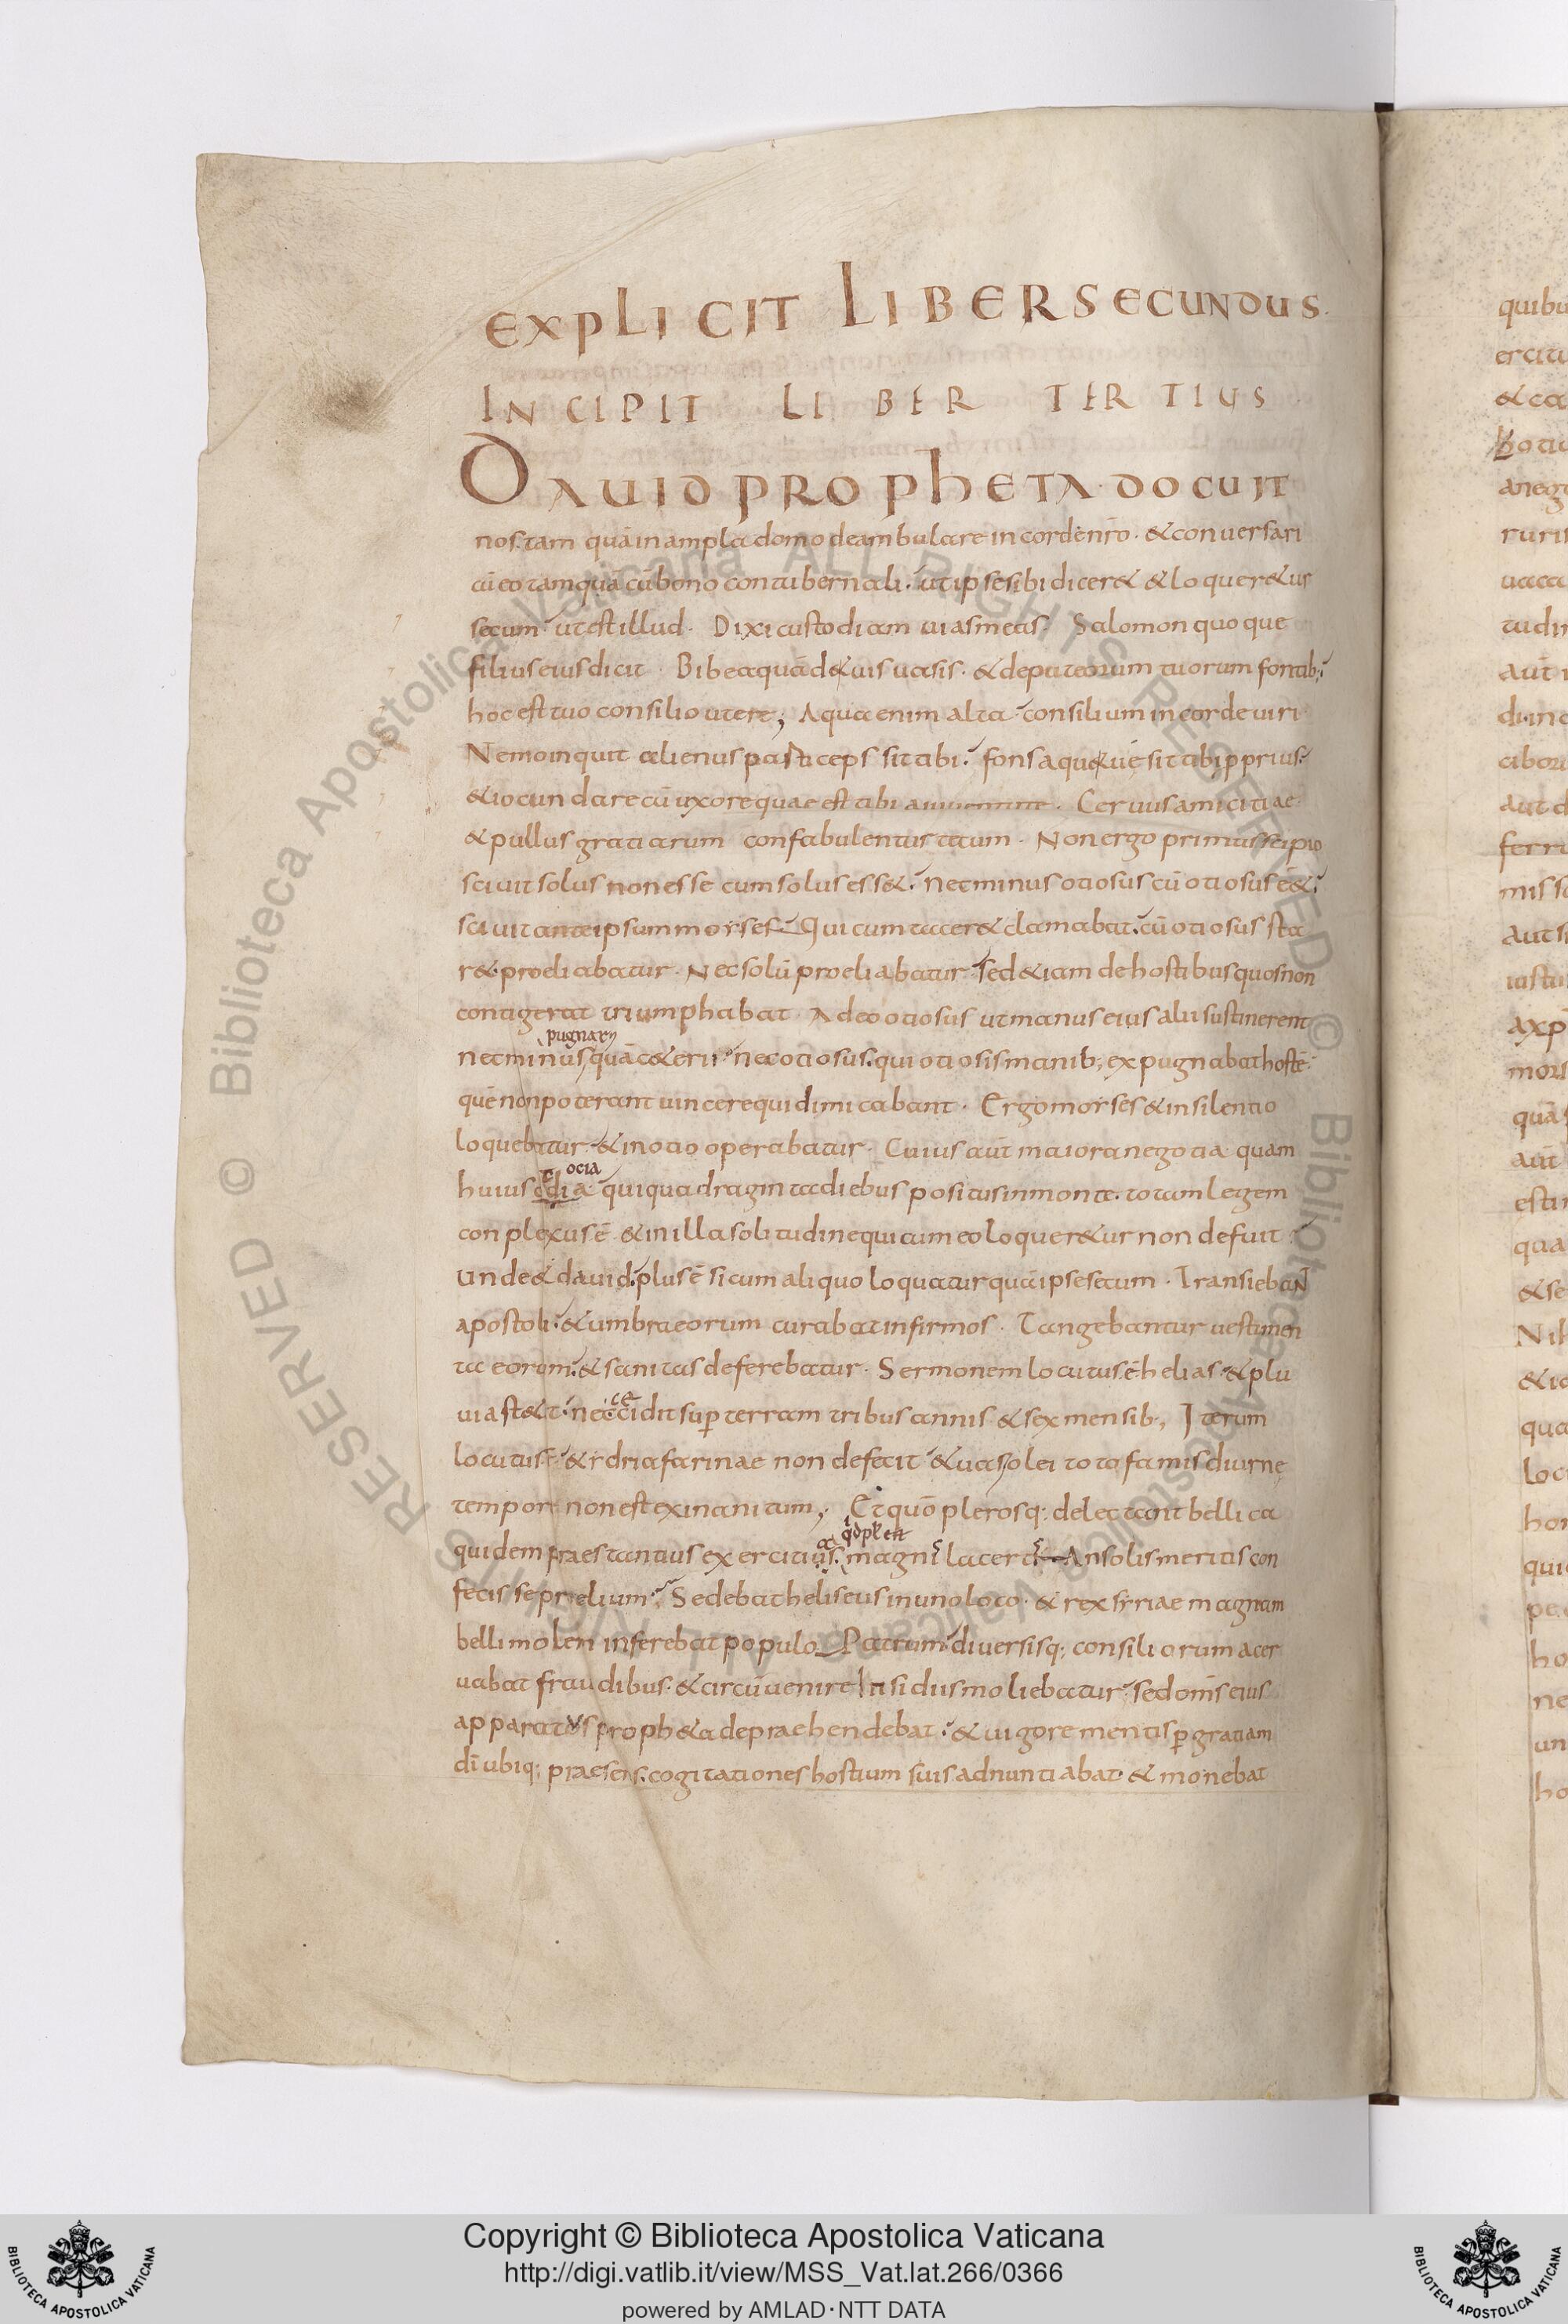 EXPLICIT LIBER SECUNDUS.
INCIPIT LIBER TERTIUS
DAVID PROPHETA DOCUIT
nos. tam quā in ampla domo deambulare in corde nr̄o · & conuersari
cū eo tamquā cū bono contubernali. ut ipse sibi dicer& & loquer&ur
secum ut est illud · Dixi custodiam uias meas. Salomon quoque
filius eius dicit · Bibe aquā de tuis uasis · & de puteorum tuorum fontib;
hoc est tuo consilio utere; Aqua enim alta consilium in corde uiri
Nemo inquit alienus particeps sit tibi. fons aquę tuę sit tibi pprius.
& iocundare cū uxore quae est tibi a iuuentute · Ceruus amicitiae
& pullus gratiarum confabulentur tecum · Non ergo primus scipio
sciuit solus non esse cum solus ess&. nec minus otiosus cū otiosus ē&.
sciuit ante ipsum moyses. Qui cum tacer& clamabat. cū otiosus sta
r& proeliabatur · Nec solū proeliabatur sed & iam de hostibus quos non
contigerat triumphabat · Adeo otiosus ut manus eius alii sustinerent
pugnary
nec minus quā c&eri nec otiosus. qui otiosis manib; expugnabat hostē.
quē non poterant uincere qui dimicabant · Ergo moyses & in silentio
loquebatur & in otio operabatur · Cuius aūt maiora negotia quam
ocia
huius qui quadraginta diebus positus in monte. totam legem
conplexus ē & in illa solitudine qui cum eo loquer&ur non defuit
Unde & dauid. plus ē si cum aliquo loquatur quā ipse secum · TransiebaN
apostoli. & umbra eorum curabat infirmos · Tangebantur uestimen
ta eorum. & sanitas deferebatur · Sermonem locutus ē helias & plu
uia stetit. nec cecidit sup terram tribus annis & sex mensib; Iterum
locutus ē & ydria farinae non defecit & uas olei toto famis diurnę
tempore non est exinanitum; Et quō plerosq; delectant bellica
qd pl est
quidem praestantius exercitus magni lacertis An solis meritis con
fecisse prelium. Sedebat heliseus in uno loco · & rex syriae magnam
belli molem inferebat populo Patrum diuersisq; consiliorum acer
uabat fraudibus. & circūuenire insidiis moliebatur. sed om̄s eius
apparatus proph&a depraehendebat. & uigore mentis p gratiam
dī ubiq; praesens. cogitationes hostium suis adnuntiabat & monebat
quibu
ercitu
& ca
aneg
ruris
uaca
tudin
aut
di inc
cibor
aut d
ferru
mis s
aut s
iustu
axp
mors
quā
aūt
esti
qua
& se
Nih
& io
qua
loc
hor
quic
pe
ho
ne
un
ho
© Biblioteca Apostolica Vaticana ALL RIGHTS RESERVED © Biblioteca Apostolica Vaticana ALL RIGHTS RESERVED
BIBLIOTECA APOSTOLICA VATICANA
Copyright © Biblioteca Apostolica Vaticana
http://digi.vatlib.it/view/MSS_Vat.lat.266/0366
powered by AMLAD·NTT DATA
BIBLIOTECA APOSTOLICA VATICANA